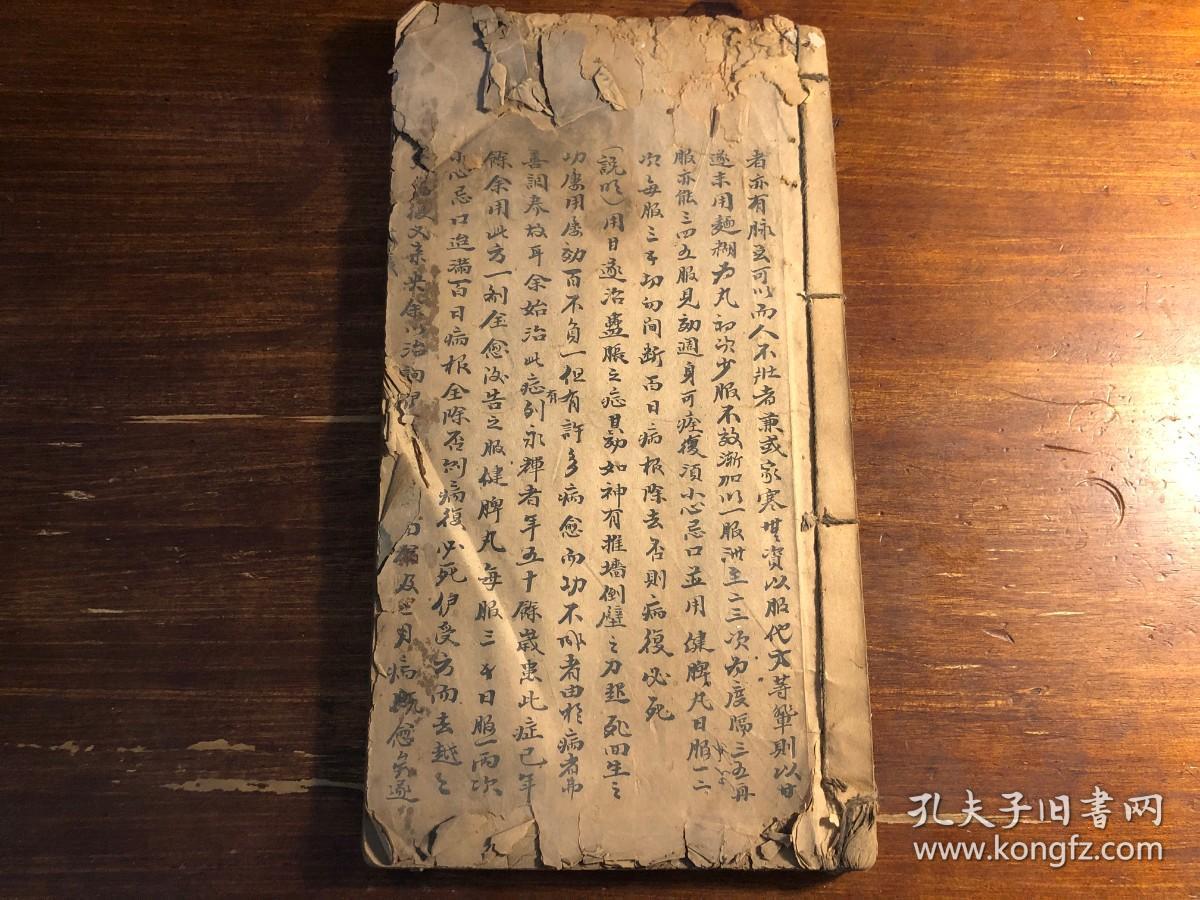 者亦有脉玄可以而人不壯者兼或家寒無資以服他方等輩則以甘
遂末用麵糊為丸初次少服不效漸加以一服洲至二三次為度隔三五再
服亦能三四五服見効週身可痊復須小心忌口並用健脾丸日服一二
次每服三子切勿间断百日病根除去否則病復必死
(説明)用甘遂治蠱脹之症其効如神有推墙倒壁之力起死回生之
功屡用屡効百不負一但有許多病愈而功不成者由於病者弗
善調养故耳余始治此症有刘永輝者年五十餘歲患此症已年
餘余用此方一剂全愈後告之服健脾丸每服三子日服一两次
小心忌口迨满百日病根全除否則病復必死伊受方而去越之
復又余治詢月病既愈矣遂
孔夫子旧书网
www.kongfz.com